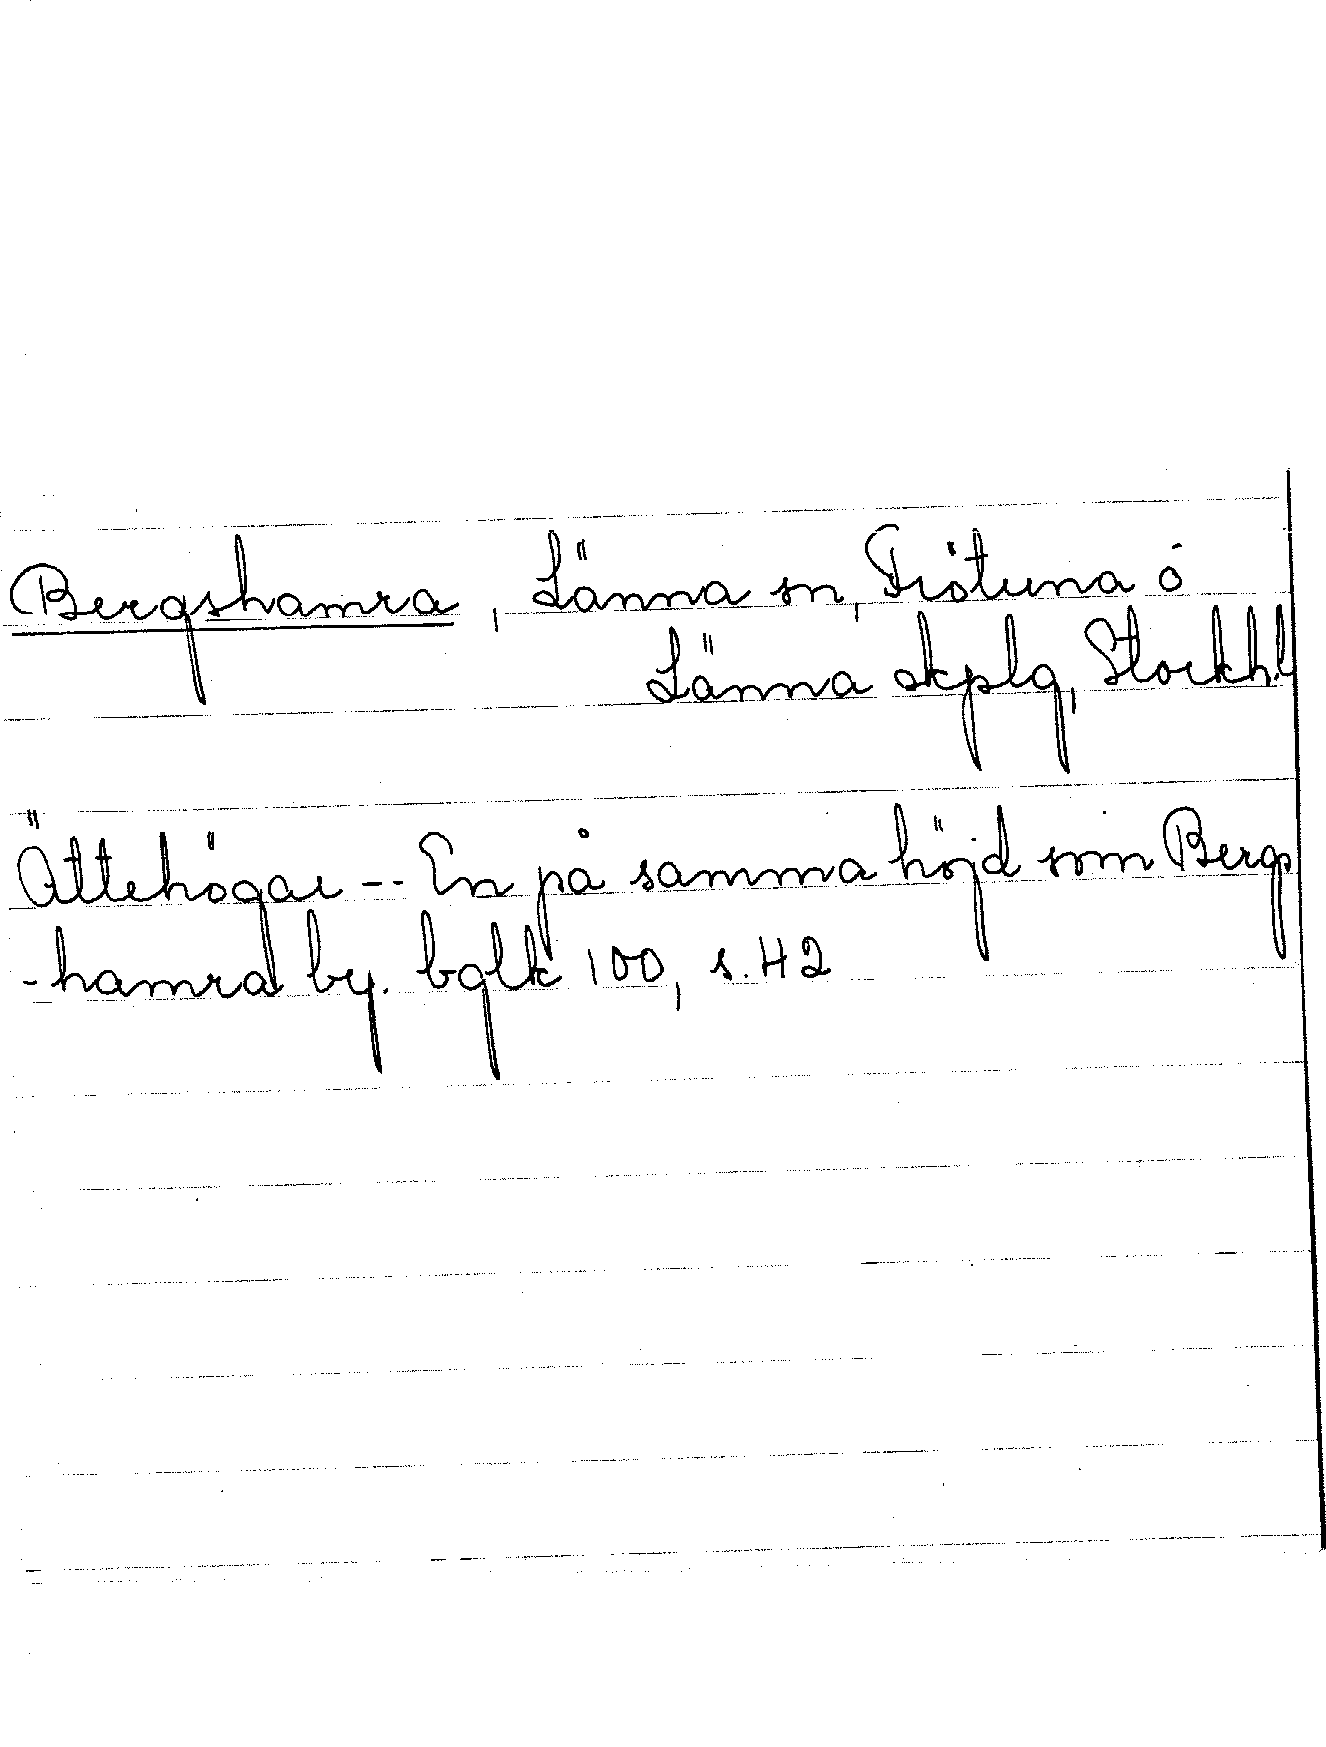 Bergshamra, Länna sn, Frötuna o
Länna skplg, Stockh.l
Ättehögar -- En på samma höjd som Bergs
-hamra by. bglk 100, s.42